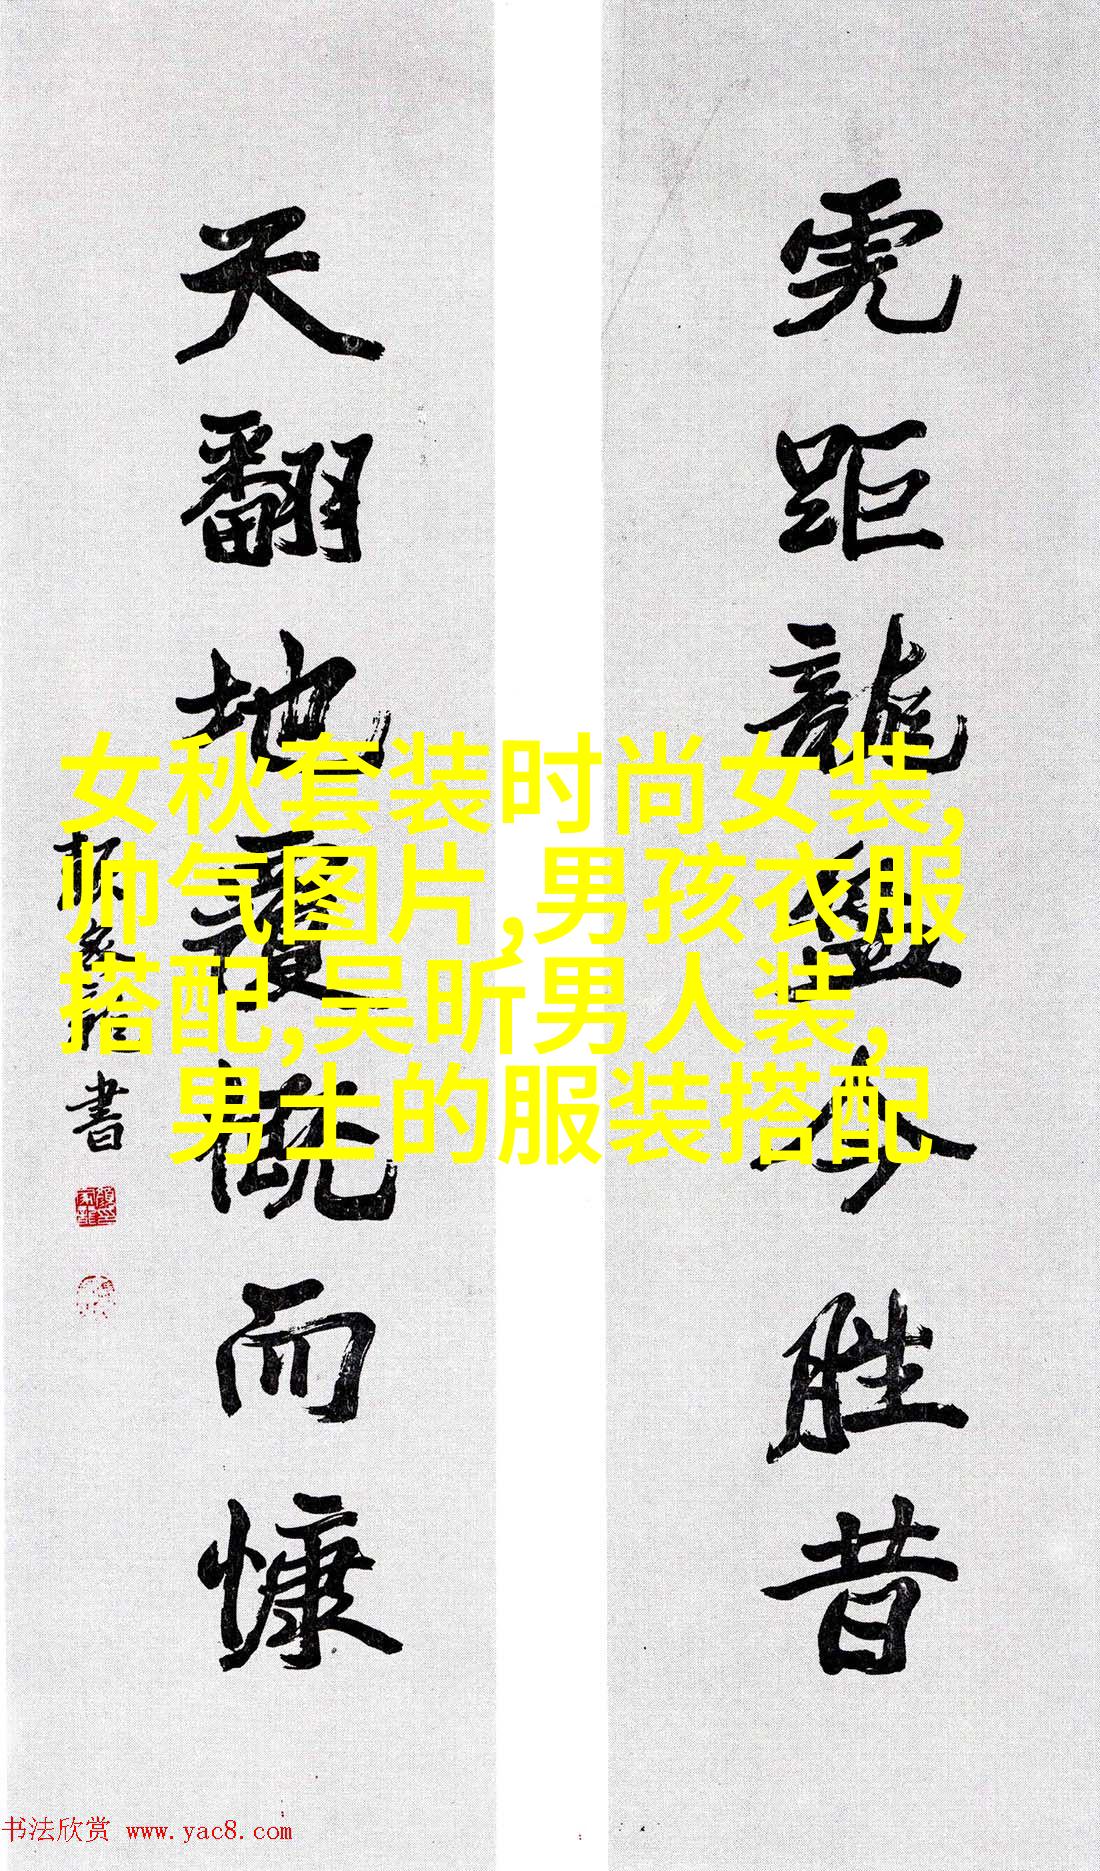 虎距龍盤今胜昔
天翻地覆慨而慷
书
女秋套装时尚女装,
帅气图片,男孩衣服
搭配,吴昕男人装,
男士的服装搭配
书法欣赏 www.yac8.com